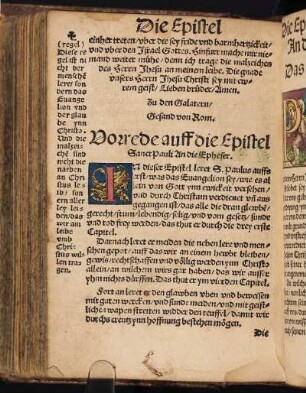 Die Epistel
einher tretten/ vber die sey fride vnd barmhertzickeit/
vnd vber den Israel Gottes. Hinfurt mache mir nie-
mand weiter mühe/ denn ich trage die malzeichen
des Herrn Jhesu an meinem leibe. Die gnade
vnsers Herrn Jhesu Christi sey mit ewrem
geist/ Lieben brüder/ Amen.
Zu den Galatern/
Gesand von Rom.
(regel)
Diese re-
gel ist ni-
cht der
mensche
lerer
sondern das
Euange-
lion
vnd der
glaube
ynn
Christo.
Vnd die
malzei-
chen sind
die
narben
an Chri-
stus lei-
b/
Vorrede auff die Epistel
Sanct Pauli An die Epheser.
IN dieser Epistel leret S. Paulus auffs
erst/ was das Euangelion sey/ wie es al-
lein von Gott ynn ewickeit versehen/
vnd durch Christum verdienet vnd aus
gegangen ist/ das alle die dran glewben/
gerecht/ frum/ lebendig/ selig/ vnd vom gesetz/ sunde
vnd tod frey werden/ das thut er durch die drey erste
Capitel.
Darnach leret er meiden die neben lere vnd men-
schen gepot/ auff das wir an einem hewbt bleiben/
gewis/ rechtschaffen vnd völlig werden ynn Christo
allein/ an wilchem wirs gar haben/ das wir ausser
yhm nichts dürffen. Das thut er ym vierden Capitel.
Fort an leret er den glawben vben vnd beweisen
mit guten wercken/ vnd sunde meiden/ vnd mit geist-
lichen wapen streitten widder den teuffel/ damit wir
durchs creutz ynn hoffnung bestehen mögen.
Die